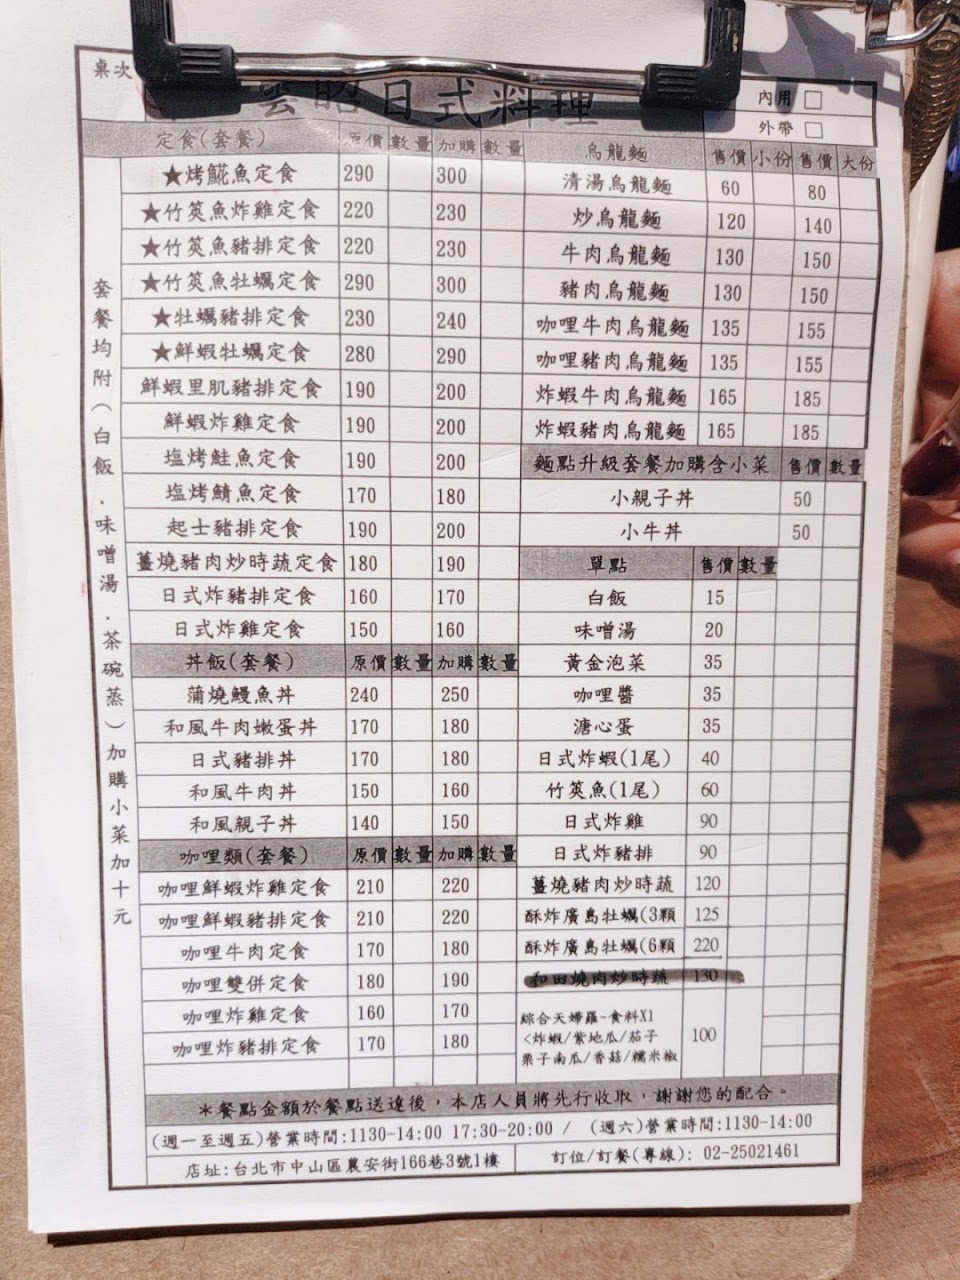 桌次
雲昭日式料理
內用 □
外帶 □
定食(套餐) 原價 數量 加購 數量
★烤鯱魚定食 290 300
★竹筴魚炸雞定食 220 230
★竹筴魚豬排定食 220 230
★竹筴魚牡蠣定食 290 300
★牡蠣豬排定食 230 240
★鮮蝦牡蠣定食 280 290
鮮蝦里肌豬排定食 190 200
鮮蝦炸雞定食 190 200
塩烤鮭魚定食 190 200
塩烤鯖魚定食 170 180
起士豬排定食 190 200
薑燒豬肉炒時蔬定食 180 190
日式炸豬排定食 160 170
日式炸雞定食 150 160
丼飯(套餐) 原價 數量 加購 數量
蒲燒鰻魚丼 240 250
和風牛肉嫩蛋丼 170 180
日式豬排丼 170 180
和風牛肉丼 150 160
和風親子丼 140 150
咖哩類(套餐) 原價 數量 加購 數量
咖哩鮮蝦炸雞定食 210 220
咖哩鮮蝦豬排定食 210 220
咖哩牛肉定食 170 180
咖哩雙併定食 180 190
咖哩炸雞定食 160 170
咖哩炸豬排定食 170 180
套餐均附(白飯.味噌湯.茶碗蒸)加購小菜加十元
烏龍麵 售價 小份 售價 大份
清湯烏龍麵 60 80
炒烏龍麵 120 140
牛肉烏龍麵 130 150
豬肉烏龍麵 130 150
咖哩牛肉烏龍麵 135 155
咖哩豬肉烏龍麵 135 155
炸蝦牛肉烏龍麵 165 185
炸蝦豬肉烏龍麵 165 185
麵點升級套餐加購含小菜 售價 數量
小親子丼 50
小牛丼 50
單點 售價 數量
白飯 15
味噌湯 20
黃金泡菜 35
咖哩醬 35
溏心蛋 35
日式炸蝦(1尾) 40
竹筴魚(1尾) 60
日式炸雞 90
日式炸豬排 90
薑燒豬肉炒時蔬 120
酥炸廣島牡蠣(3顆 125
酥炸廣島牡蠣(6顆 220
和田燒肉炒時蔬 130
綜合天婦羅~食料X1
<炸蝦/紫地瓜/茄子 100
栗子南瓜/香菇/糯米椒
＊餐點金額於餐點送達後，本店人員將先行收取，謝謝您的配合。
(週一至週五)營業時間:1130-14:00 17:30-20:00 / (週六)營業時間:1130-14:00
店址:台北市中山區農安街166巷3號1樓 訂位/訂餐(專線): 02-25021461